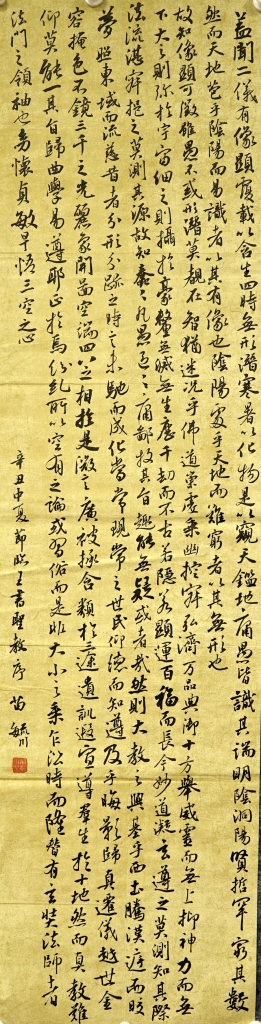 蓋聞二儀有像顯覆載以含生四時無形潛寒暑以化物是以窺天鑑地庸愚皆識其端明陰洞陽賢哲罕窮其數
然而天地苞乎陰陽而易識者以其有像也陰陽處乎天地而難窮者以其無形也
故知像顯可徵雖愚不惑形潛莫覩在智猶迷況乎佛道崇虛乘幽控寂弘濟萬品典御十方舉威靈而無上抑神力而無
下大之則彌於宇宙細之則攝於豪釐無滅無生歷千劫而不古若隱若顯運百福而長今妙道凝玄遵之莫測其際
法流湛寂挹之莫測其源故知蠢蠢凡愚區區庸鄙投其旨趣能無疑或者哉然則大教之興基乎西土騰漢庭而皎
夢照東域而流慈昔者分形分跡之時言未馳而成化當常現常之世民仰德而知遵及乎晦影歸真遷儀越世金
容掩色不鏡三千之光麗象開圖空端四八之相於是微言廣被拯含類於三途遺訓遐宣導群生於十地然而真教難
仰莫能一其旨歸曲學易遵耶正於焉紛糺所以空有之論或習俗而是非大小之乘乍沿時而隆替有玄奘法師者
法門之領袖也幼懷貞敏早悟三空之心
辛丑中夏節臨王書聖教序 苗毓川